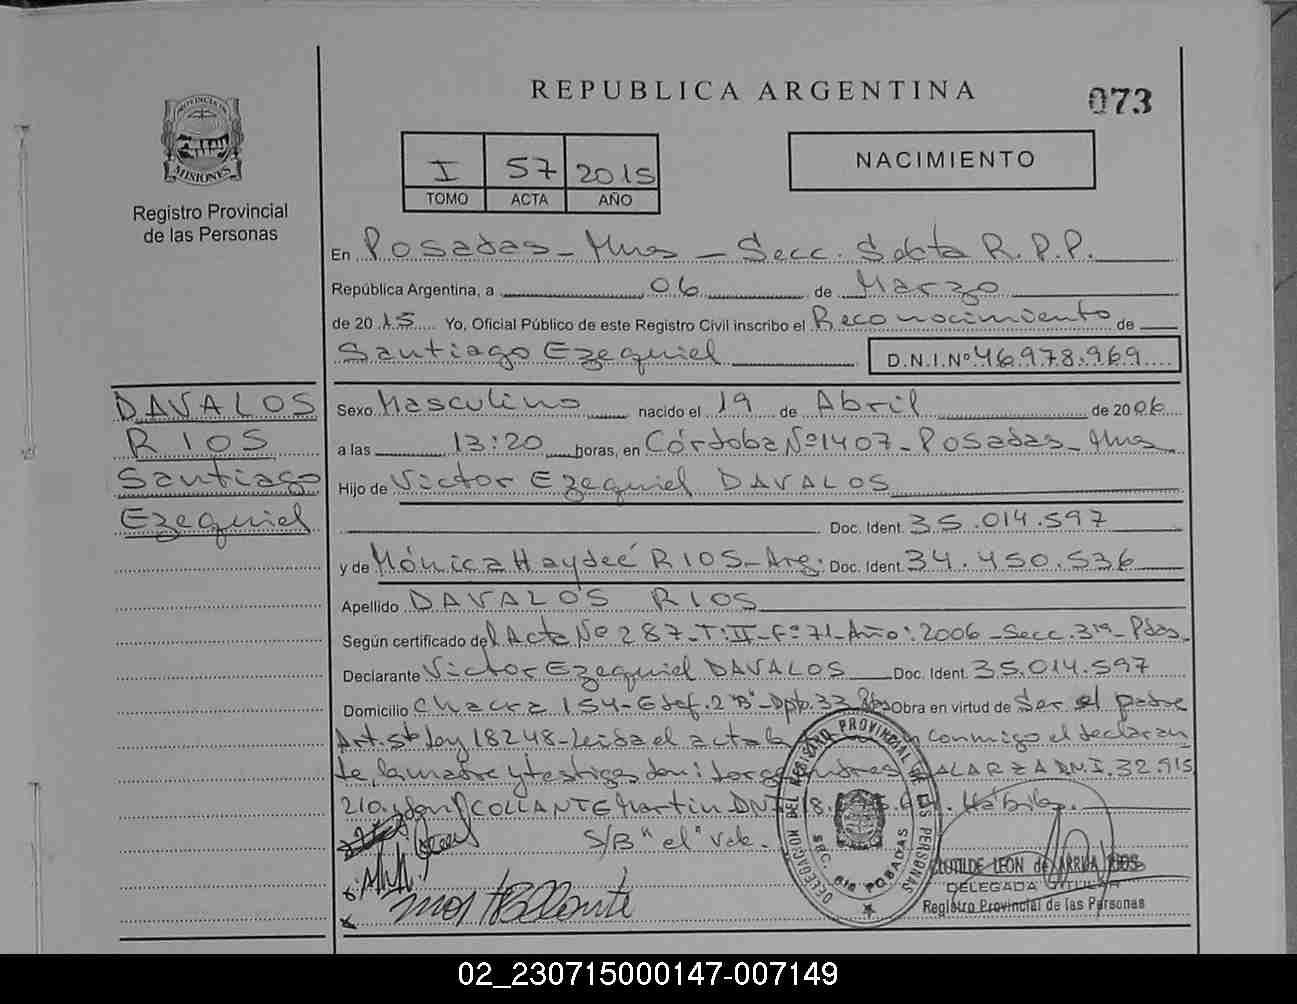 REPUBLICA ARGENTINA
073
PROVINCIA DE
MISIONES
Registro Provincial
de las Personas
I 57 2015
TOMO ACTA AÑO
NACIMIENTO
En Posadas - Mnes - Secc. Sexta R.P.P.
República Argentina, a 06 de Marzo
de 2015 Yo, Oficial Público de este Registro Civil inscribo el Reconocimiento de
Santiago Ezequiel D.N.I.Nº 46.978.969
DAVALOS
RIOS
Santiago
Ezequiel
Sexo Masculino nacido el 19 de Abril de 2006
a las 13:20 horas, en Córdoba Nº1407 - Posadas - Mnes
Hijo de Victor Ezequiel DAVALOS
Doc. Ident. 35.014.597
y de Mónica Haydeé RIOS - Arg. Doc. Ident. 34.450.536
Apellido DAVALOS RIOS
Según certificado del Acta Nº 287 - T: II - Fº 71 - Año: 2006 - Secc. 3ra - Pdas.
Declarante Victor Ezequiel DAVALOS Doc. Ident. 35.014.597
Domicilio Chacra 154 - Edif. 2 "B" - Dpto. 33 Obra en virtud de Ser el padre
Art. 5to Ley 18248 - Leida el acta la conmigo el declaran
te, la madre y testigos don: Jorge ALARZA DNI. 32.915
210. y don COLLANTE Martin DNI 18. Hábiles.
S/B "el" Vale.
DELEGACION DEL REGISTRO PROVINCIAL DE LAS PERSONAS
SEC. 6ta POSADAS
CLOTILDE LEON de ARRUA RIOS
DELEGADA TITULAR
Registro Provincial de las Personas
02_230715000147-007149